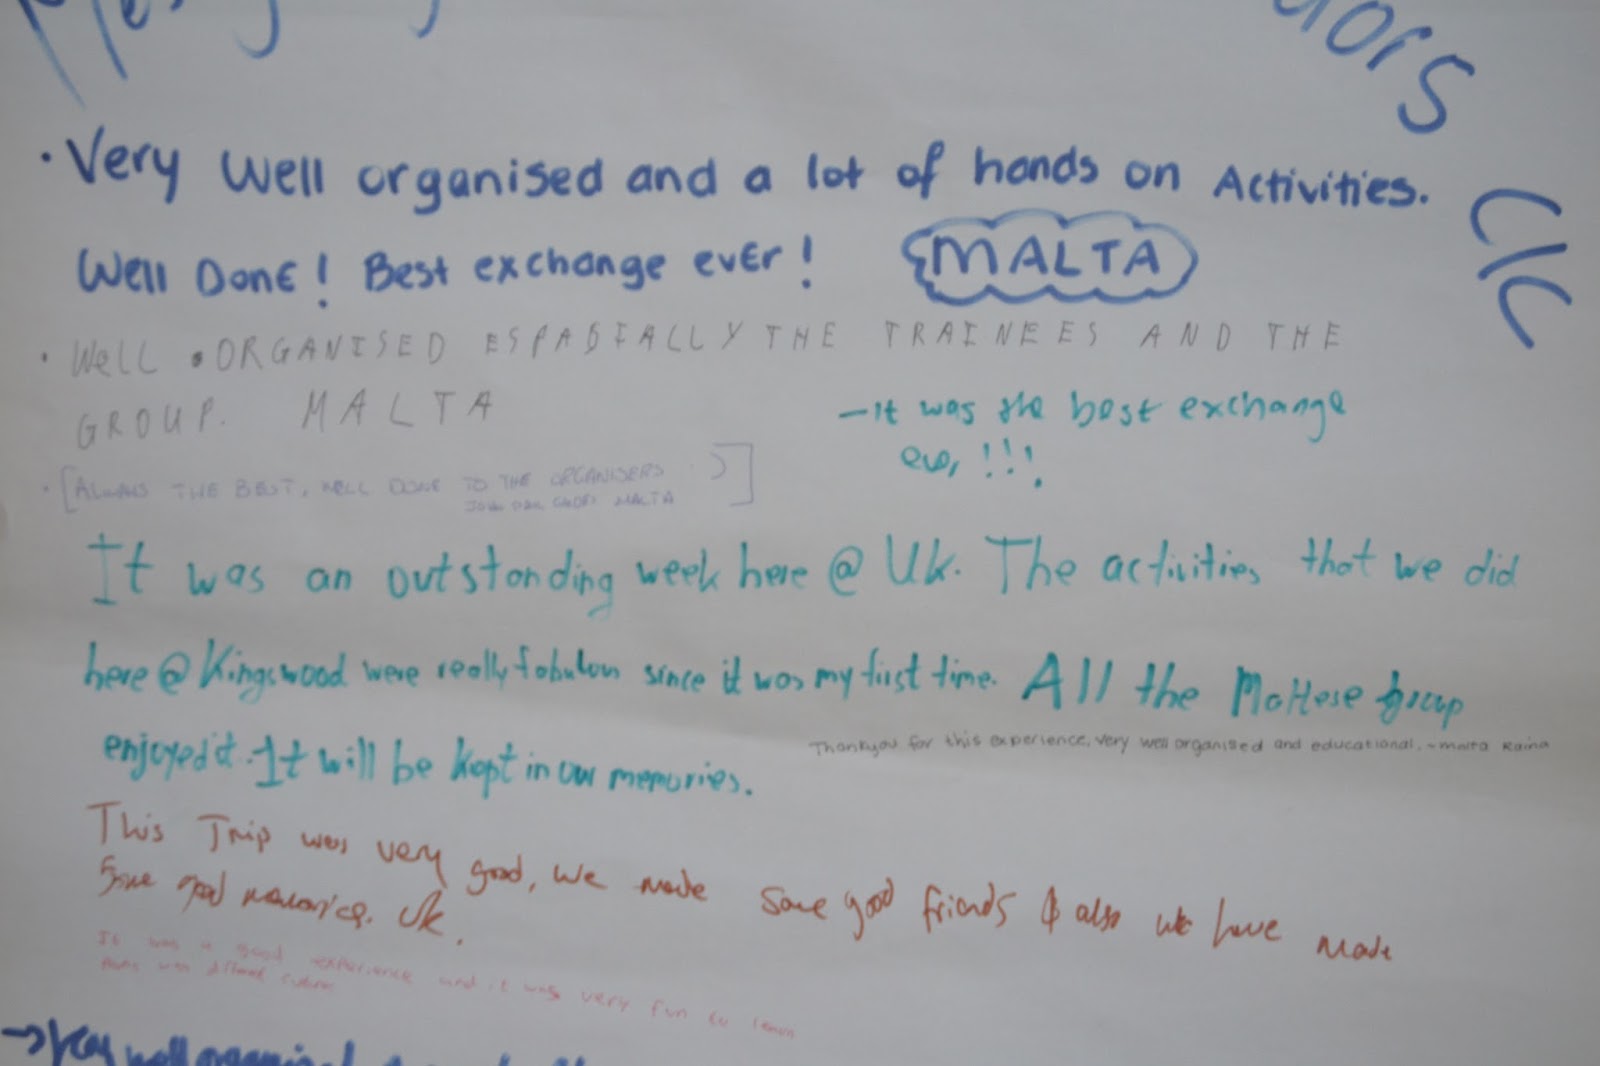 CIC
• Very well organised and a lot of hands on Activities.
Well Done! Best exchange ever! MALTA
• Well ORGANISED ESPASIALLY THE TRAINEES AND THE
GROUP. MALTA
- It was the best exchange
ever !!!.
• [ALWAYS THE BEST, WELL DONE TO THE ORGANISERS :)]
MALTA
It was an outstanding week here @ Uk. The activities that we did
here @ Kingswood were really fabulous since it was my first time. All the Maltese group
enjoyed it. It will be kept in our memories.
Thankyou for this experience, very well organised and educational. ~ Malta Raina
This Trip was very good, we made some good friends & also we have made
some good memories. Uk.
It was a good experience and it was very fun to learn
different cultures
→ Very well organised